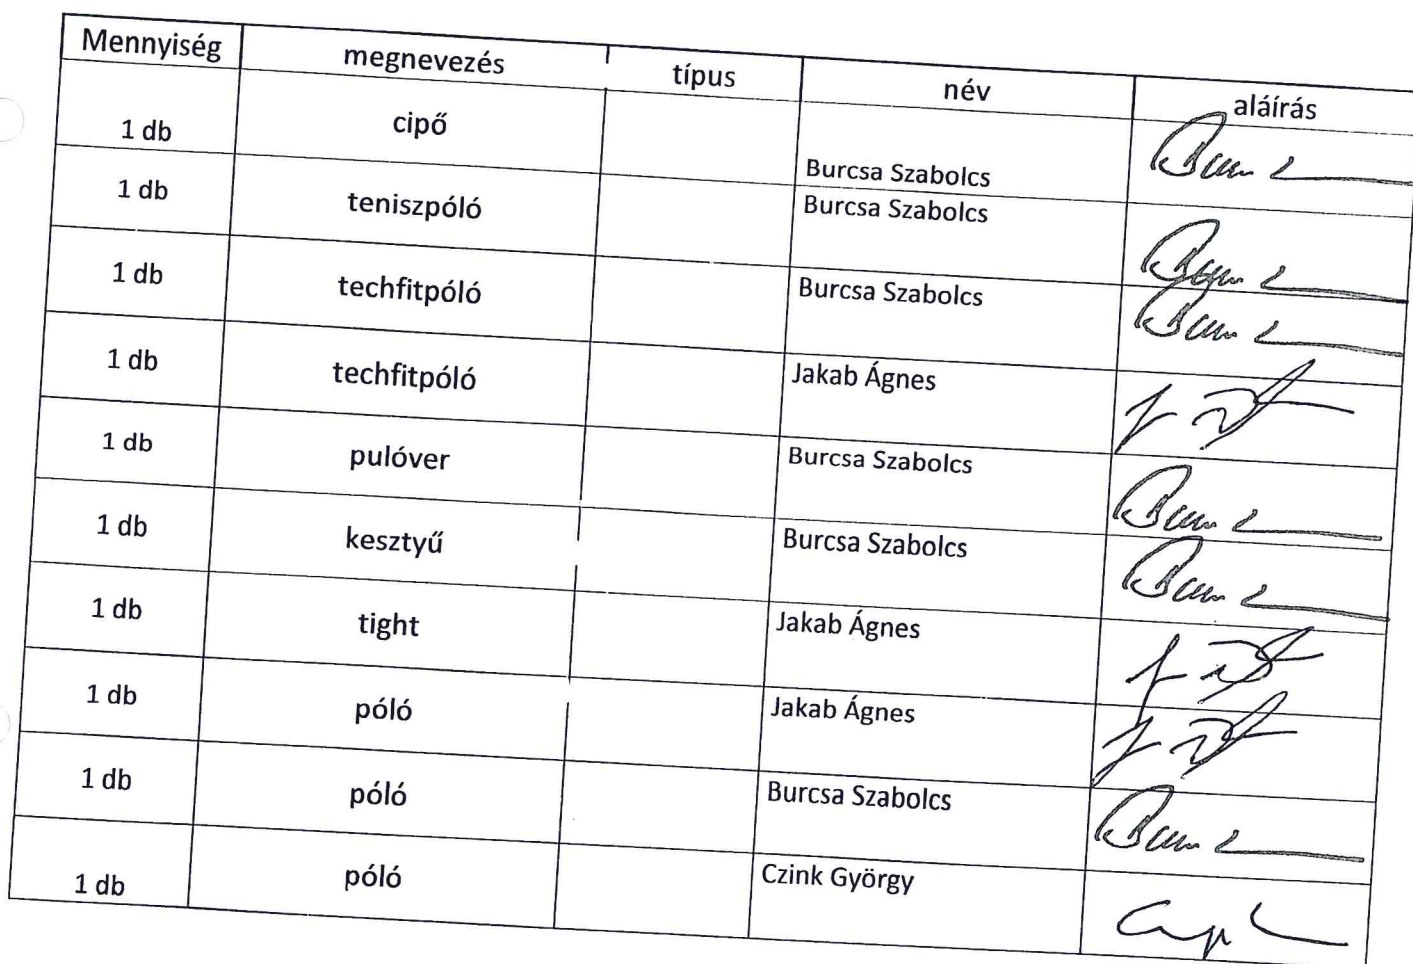 Mennyiség megnevezés típus név aláírás
1 db cipő Burcsa Szabolcs
1 db teniszpóló Burcsa Szabolcs
1 db techfitpóló Burcsa Szabolcs
1 db techfitpóló Jakab Ágnes
1 db pulóver Burcsa Szabolcs
1 db kesztyű Burcsa Szabolcs
1 db tight Jakab Ágnes
1 db póló Jakab Ágnes
1 db póló Burcsa Szabolcs
1 db póló Czink György